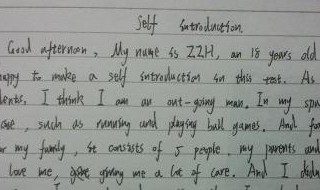 Self introduction.
Good afternoon, My name is ZZH, an 18 years old
happy to make a self introduction in this test. As
dents. I think I am an out-going man. In my spa
, such as running and playing ball games. And fo
my family, it consists of 5 people. my parents and
love me, giving me a lot of care. And I